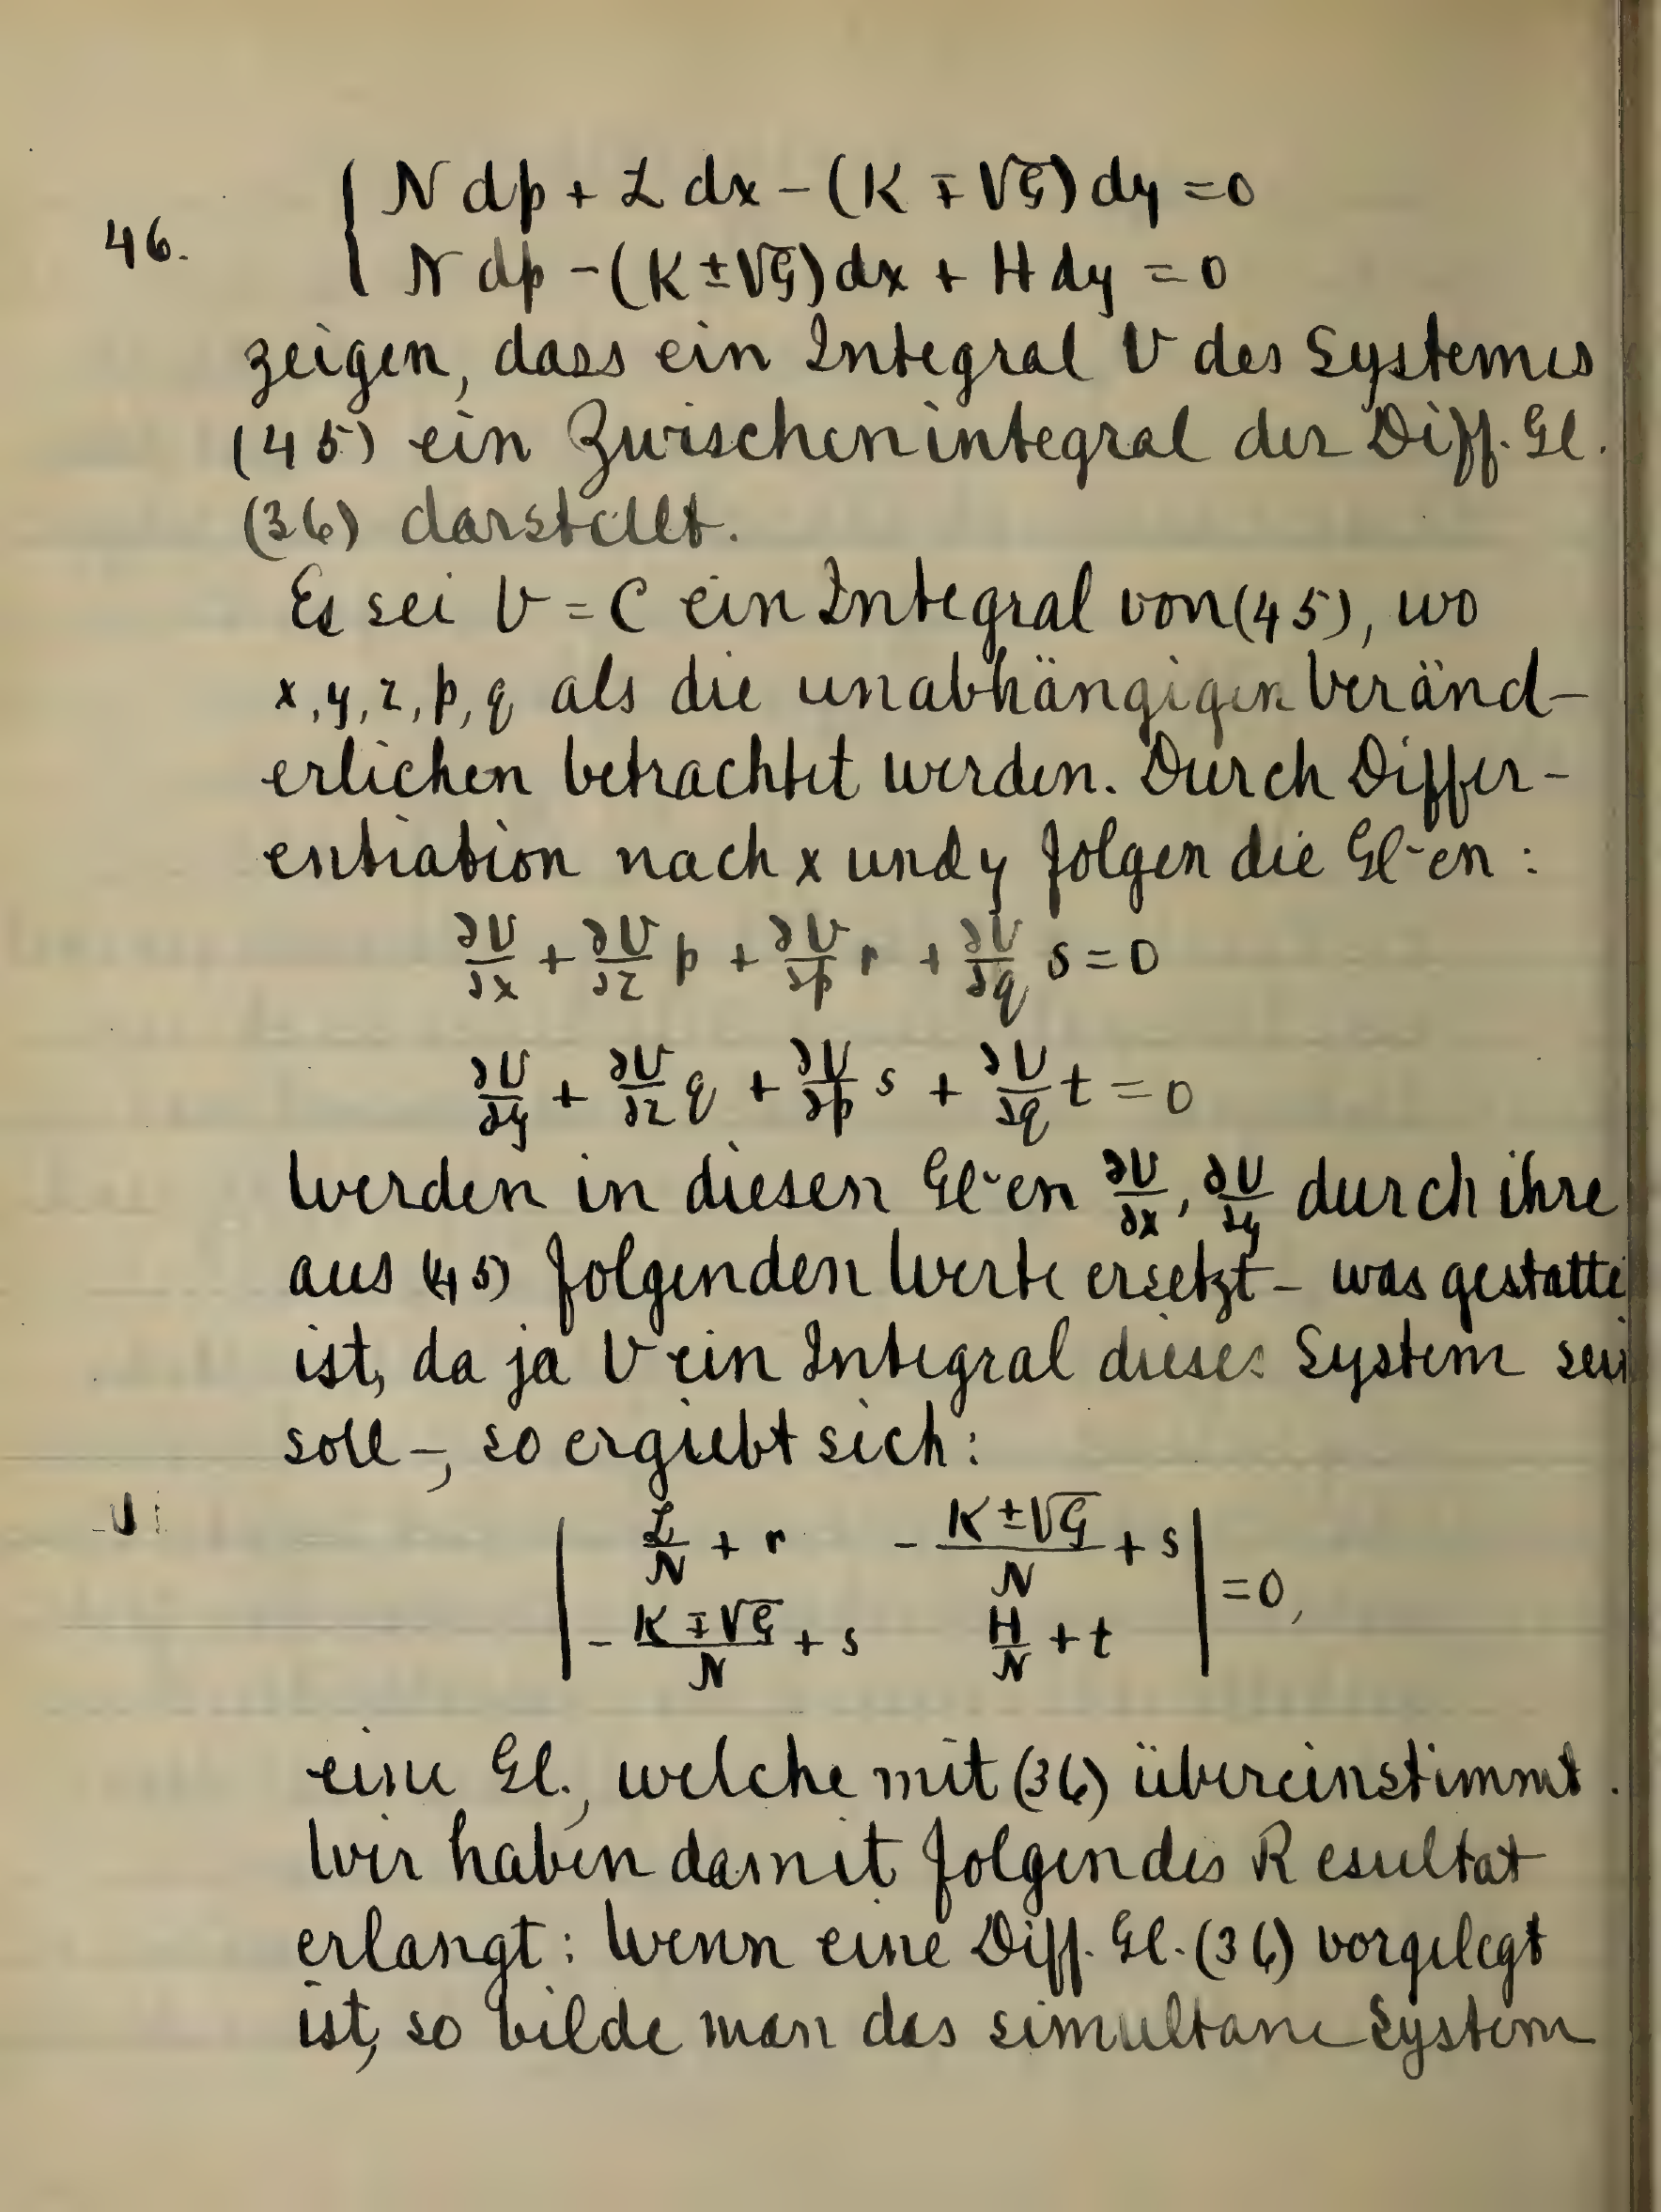 46. { N dp + L dx − (K ∓ √G) dy = 0
N dp − (K ± √G) dx + H dy = 0
zeigen, dass ein Integral V des Systemes
(45) ein Zwischenintegral der Diff. Gl.
(36) darstellt.
Es sei V = C ein Integral von (45), wo
x, y, z, p, q als die unabhängigen Veränd-
erlichen betrachtet werden. Durch Differ-
entiation nach x und y folgen die Gl-en :
∂V/∂x + ∂V/∂z p + ∂V/∂p r + ∂V/∂q s = 0
∂V/∂y + ∂V/∂z q + ∂V/∂p s + ∂V/∂q t = 0
Werden in diesen Gl-en ∂V/∂x, ∂V/∂y durch ihre
aus (45) folgenden Werte ersetzt – was gestatte
ist, da ja V ein Integral dieses System sein
soll –, so ergiebt sich :
| L/N + r   − (K ± √G)/N + s |
| − (K ∓ √G)/N + s   H/N + t | = 0,
eine Gl., welche mit (36) übereinstimmt.
Wir haben damit folgendes Resultat
erlangt : Wenn eine Diff. Gl. (36) vorgelegt
ist, so bilde man das simultane System